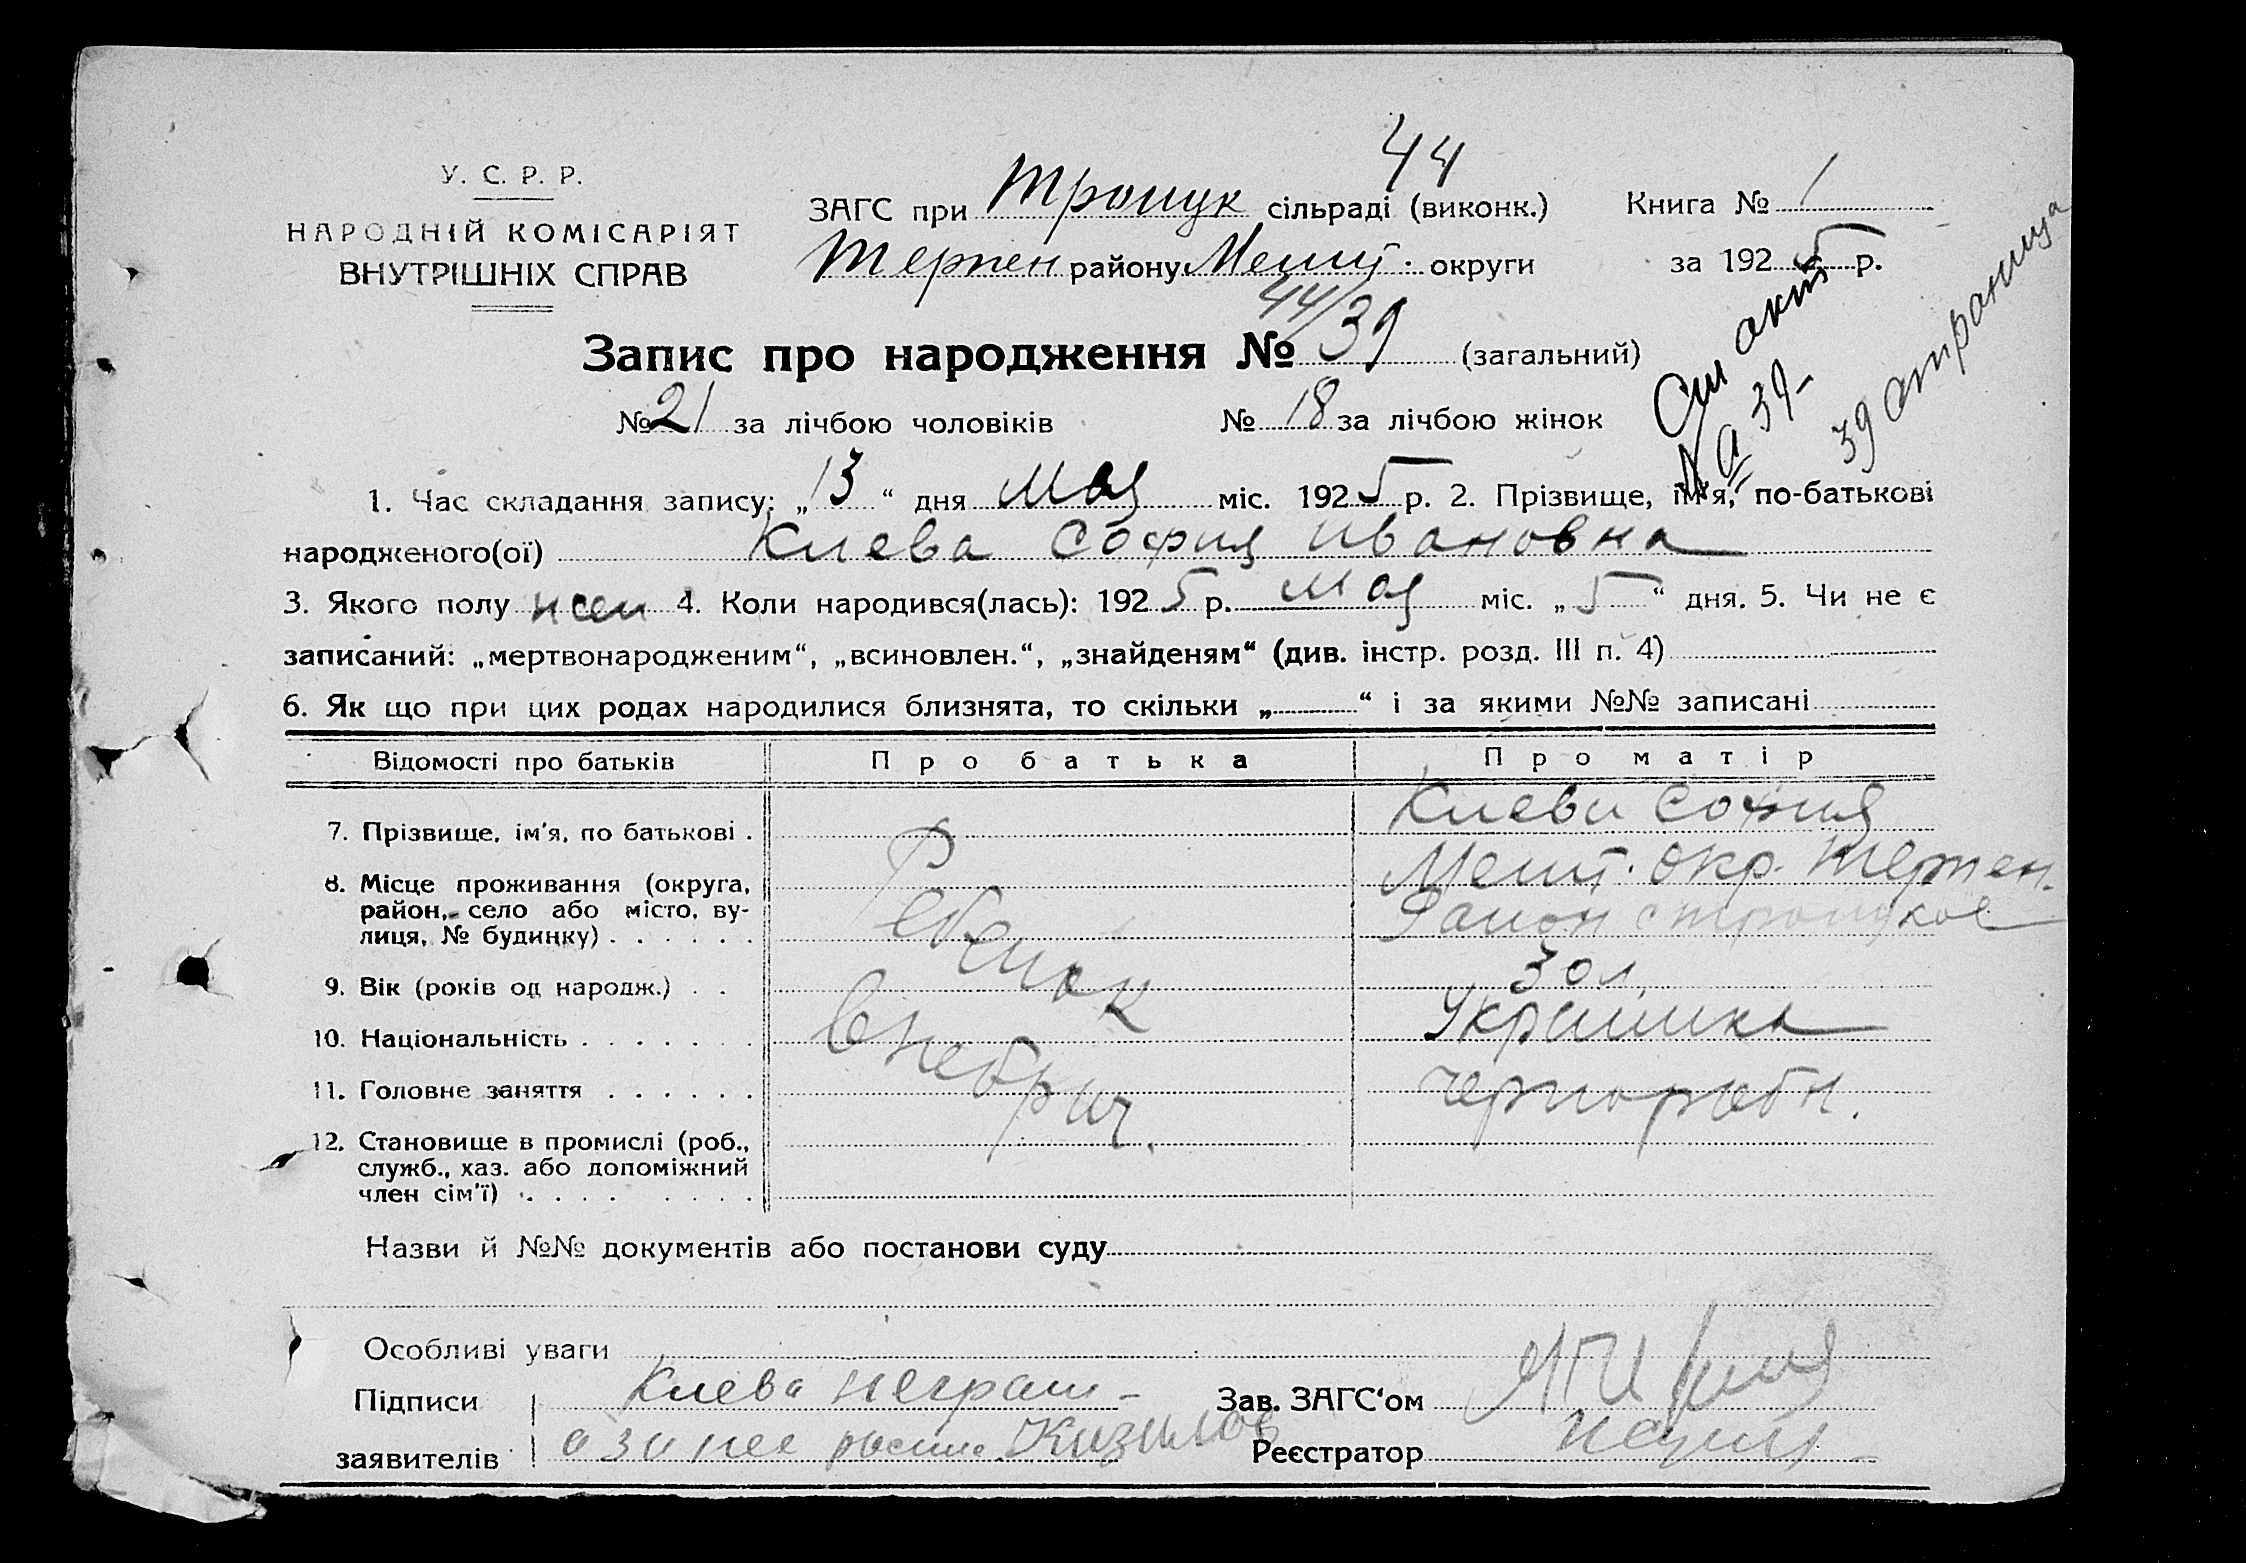 44
У. С. Р. Р.
НАРОДНІЙ КОМІСАРІЯТ
ВНУТРІШНІХ СПРАВ
ЗАГС при Трощук сільраді (виконк.)
Терпен району Меліт. округи
Книга № 1
за 1925 р.
44/39
Запис про народження № 39 (загальний)
См акт
на 39-
39 страница
№ 21 за лічбою чоловіків № 18 за лічбою жінок
1. Час складання запису: „13“ дня Мая міс. 1925 р. 2. Прізвище, ім'я, по-батькові
народженого(ої) Киева София Ивановна
3. Якого полу жен 4. Коли народився(лась): 1925 р. Мая міс. „5“ дня. 5. Чи не є
записаний: „мертвонародженим“, „всиновлен.“, „знайденям“ (див. інстр. розд. III п. 4)
6. Як що при цих родах народилися близнята, то скільки „ “ і за якими №№ записані
Відомості про батьків Про батька Про матір
7. Прізвище, ім'я, по батькові . Киева София
8. Місце проживання (округа, Меліт. окр. Терпен.
район, село або місто, ву- Район
лиця, № будинку) . . . . . .
Ребенок
9. Вік (років од народж.) . . 30 л.
10. Національність . . . . . . . Украинка
Внебрач.
11. Головне заняття . . . . . . чернорабн.
12. Становище в промислі (роб.,
служб., хаз. або допоміжний
член сім'ї) . . . . . . . .
Назви й №№ документів або постанови суду
Особливі уваги
Підписи Киева неграм- Зав. ЗАГС'ом
заявителів а за нее росписа Кизилов Реєстратор